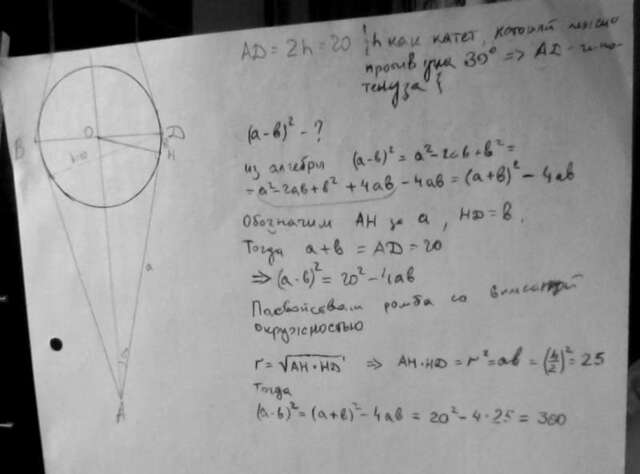 AD = 2h = 20 {h как катет, который лежит
против угла 30° => AD - гипо-
тенуза}
(a-b)² - ?
из алгебры (a-b)² = a² - 2ab + b² =
= a² - 2ab + b² + 4ab - 4ab = (a+b)² - 4ab
Обозначим AH за a, HD = b.
Тогда a + b = AD = 20
=> (a-b)² = 20² - 4ab
По свойствам ромба со вписанной
окружностью
r = √AH·HD => AH·HD = r² = ab = (h/2)² = 25
Тогда
(a-b)² = (a+b)² - 4ab = 20² - 4·25 = 300
B
O
D
H
h=10
a
A